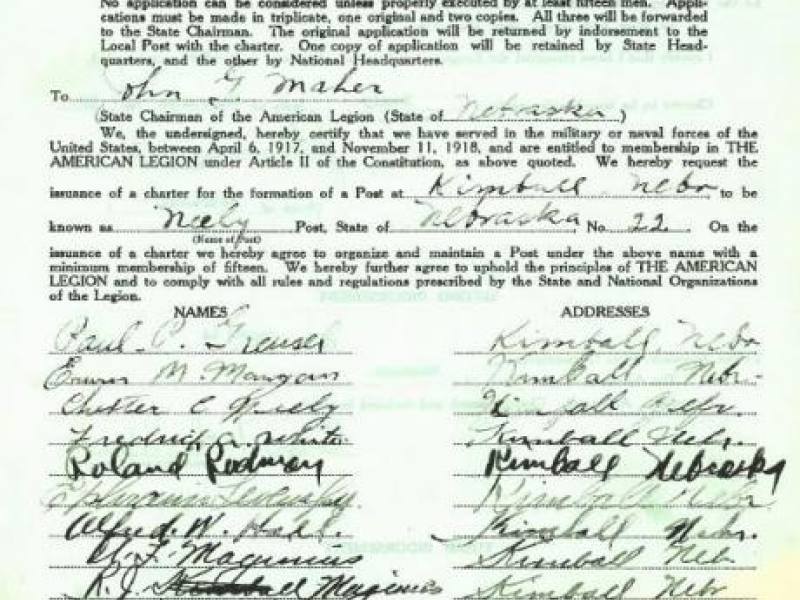 No application can be considered unless properly executed by at least fifteen men. Appli-
cations must be made in triplicate, one original and two copies. All three will be forwarded
to the State Chairman. The original application will be returned by indorsement to the
Local Post with the charter. One copy of application will be retained by State Head-
quarters, and the other by National Headquarters.
To John G. Maher
(State Chairman of the American Legion (State of Nebraska )
We, the undersigned, hereby certify that we have served in the military or naval forces of the
United States, between April 6, 1917, and November 11, 1918, and are entitled to membership in THE
AMERICAN LEGION under Article II of the Constitution, as above quoted. We hereby request the
issuance of a charter for the formation of a Post at Kimball Nebr to be
known as Neely Post, State of Nebraska No. 22. On the
(Name of Post)
issuance of a charter we hereby agree to organize and maintain a Post under the above name with a
minimum membership of fifteen. We hereby further agree to uphold the principles of THE AMERICAN
LEGION and to comply with all rules and regulations prescribed by the State and National Organizations
of the Legion.
NAMES ADDRESSES
Paul P. Kimball, Nebr
M. Kimball Nebr.
Chester C Neely Nebr.
Fredrick A. White Kimball Nebr.
Roland Rodman Kimball Nebraska
Ephraim Kimball Nebr
Alfred. W. Hall. Kimball Nebr.
Maginnis Kimball Nebr
R. J. Maginnis Kimball Nebr